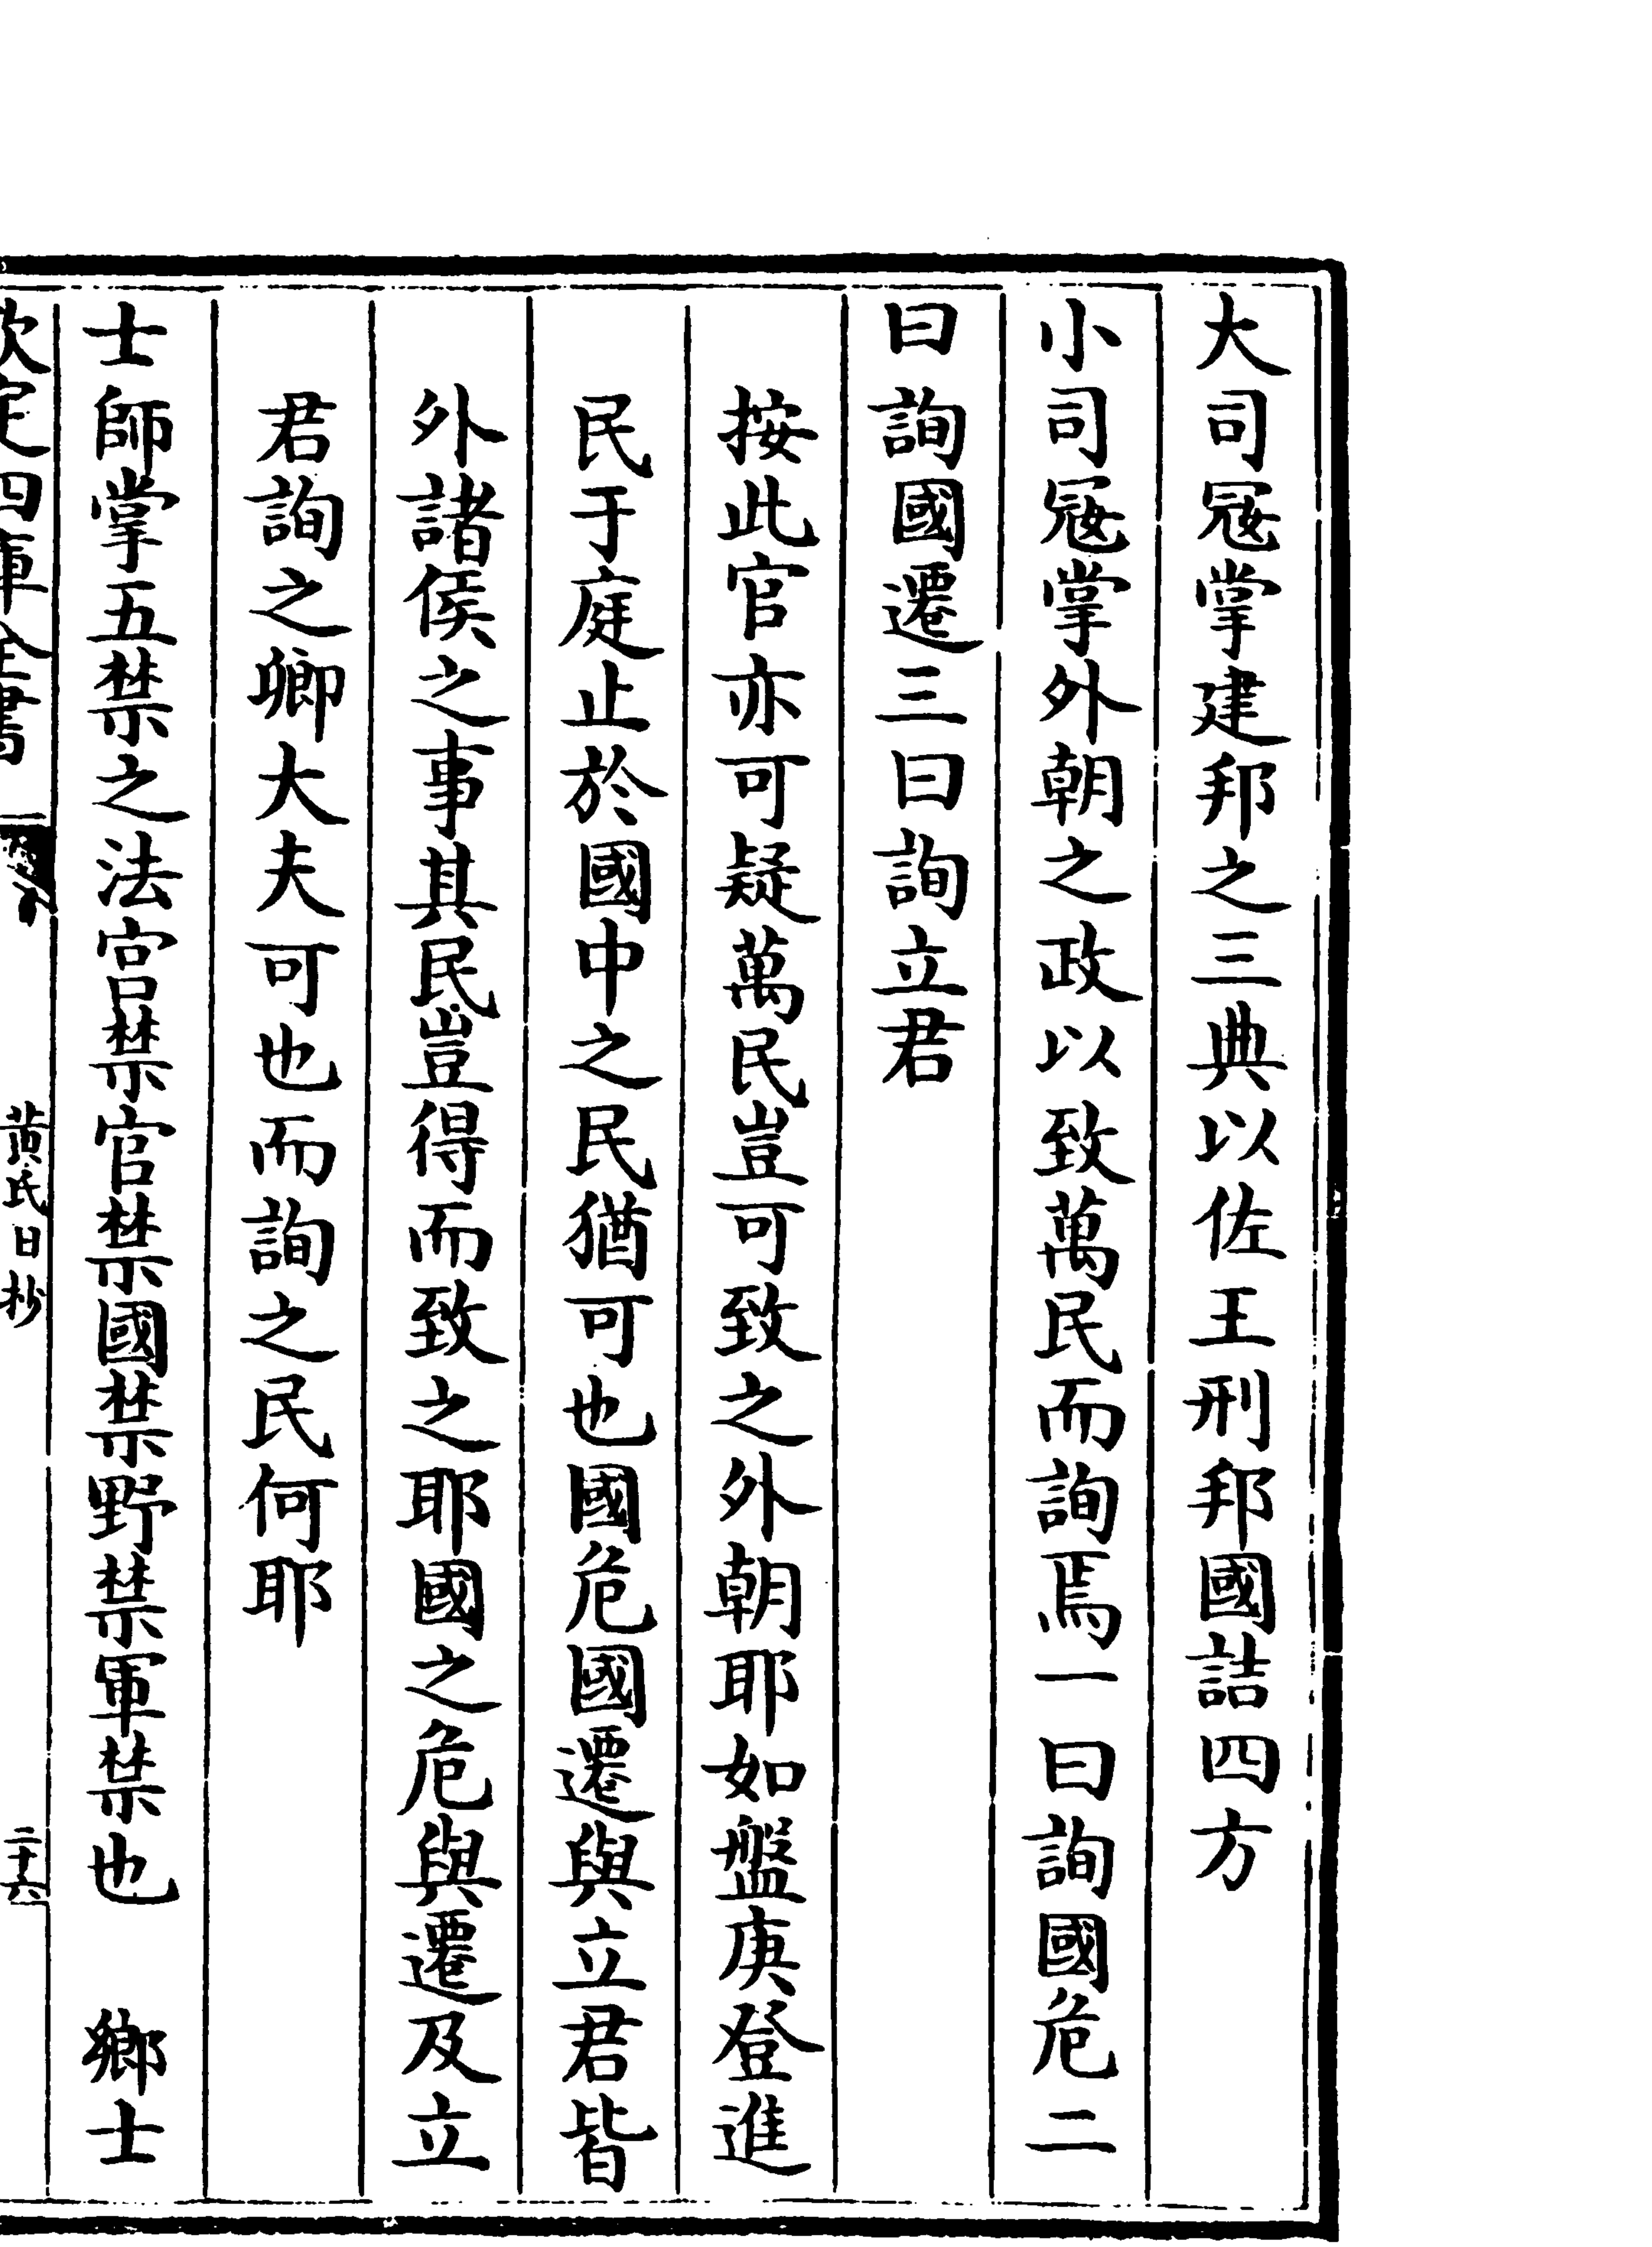 大司寇掌建邦之三典以佐王刑邦國詰四方
小司寇掌外朝之政以致萬民而詢焉一曰詢國危二
曰詢國遷三曰詢立君
按此官亦可疑萬民豈可致之外朝耶如盤庚登進
民于庭止於國中之民猶可也國危國遷與立君皆
外諸侯之事其民豈得而致之耶國之危與遷及立
君詢之卿大夫可也而詢之民何耶
士師掌五禁之法宫禁官禁國禁野禁軍禁也　鄉士
欽定四庫全書
黄氏日抄
二十六